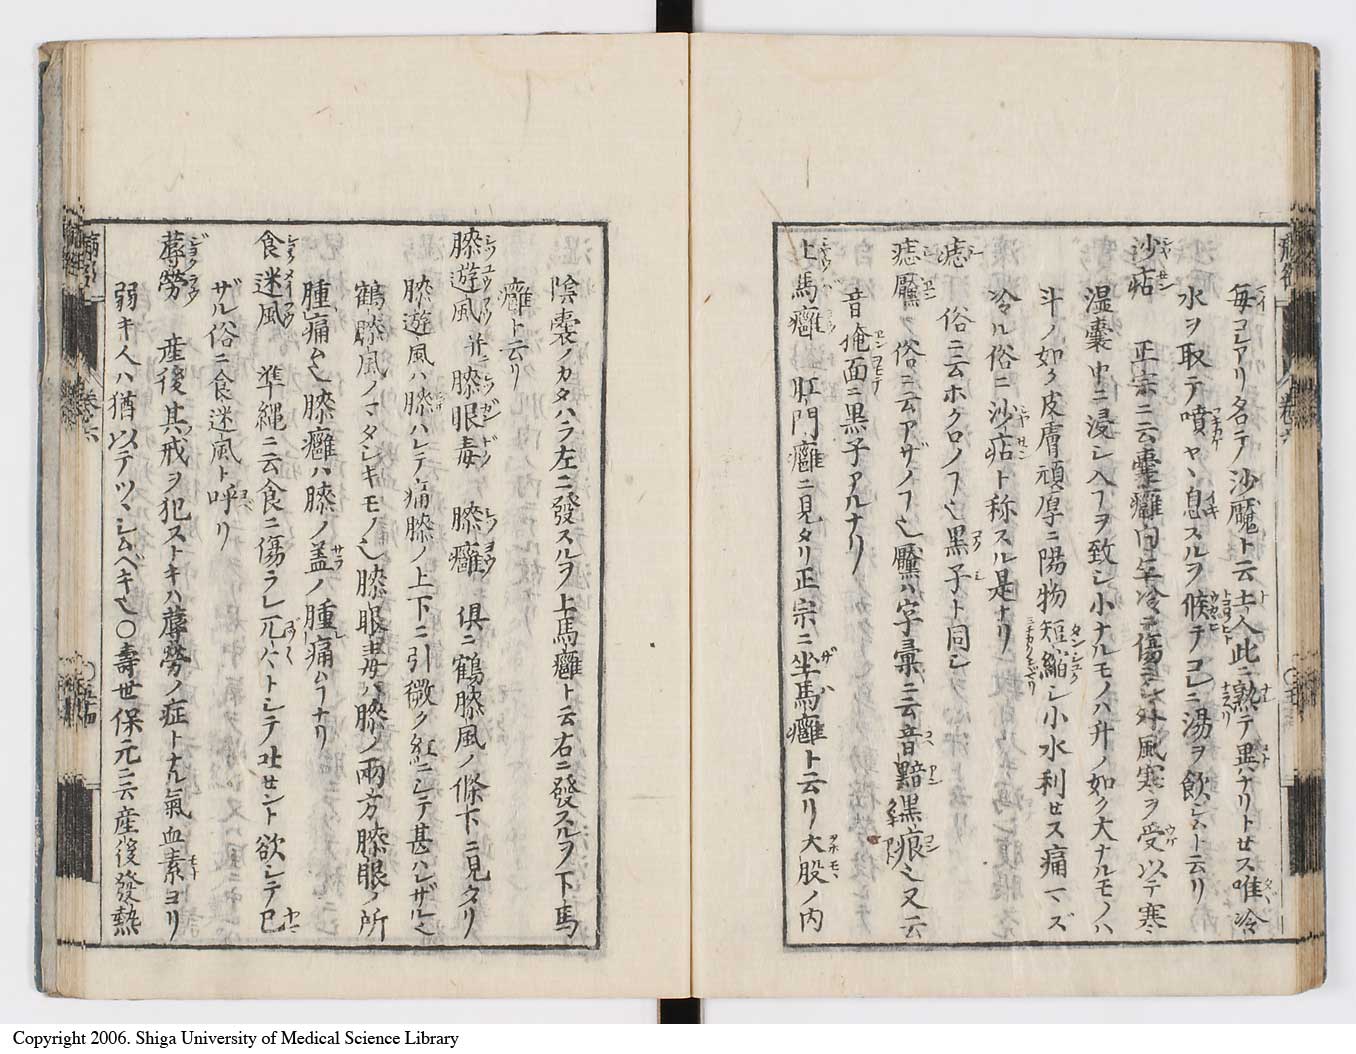 毎コレアリ名テ沙魔ト云土人此ニ熟テ異ハナリトセス唯冷
水ヲ取テ噴ヤヽ息スルヲ候チコレニ湯ヲ飲シムト云リ
沙痁 正宗ニ云囊癰内生冷ニ傷ラレ外風寒ヲ受以テ寒
湿囊中ニ浸シ入ヿヲ致シ小ナルモノハ升ノ如ク大ナルモノハ
斗ノ如ク皮膚頑厚ニ陽物短縮シ小水利セス痛マズ
冷ル俗ニ沙痁ト称スル是ナリ
痣 俗ニ云ホクロノヿ也黒子ト同シ
痣黶 俗ニ云アザノヿ也黶ハ字彙ニ云音黯黒痕也又云
音俺面ニ黒子アルナリ
上馬癰 肛門癰ニ見タリ正宗ニ坐馬癰ト云リ大股ノ内
陰囊ノカタハラ左ニ發スルヲ上馬癰ト云右ニ發スルヲ下馬
癰ト云リ
膝遊風 并ニ膝眼毒 膝癰 倶ニ鶴膝風ノ條下ニ見タリ
膝遊風ハ膝ハレテ痛膝ノ上下ニ引微ク紅ニシテ甚ハレザル也
鶴膝風ノマダシキモノ也膝眼毒ハ膝ノ兩方膝眼ノ所
腫痛ム也膝癰ハ膝ノ盖ノ腫痛ムヿナリ
食迷風 準繩ニ云食ニ傷ラレ兀〻トシテ吐セント欲シテ已
ザル俗ニ食迷風ト呼リ
蓐勞 産後其戒ヲ犯ストキハ蓐勞ノ症トナル氣血素ヨリ
弱キ人ハ猶以テツヽシムベキ也○壽世保元ニ云産後發熱
卷六
Copyright 2006. Shiga University of Medical Science Library